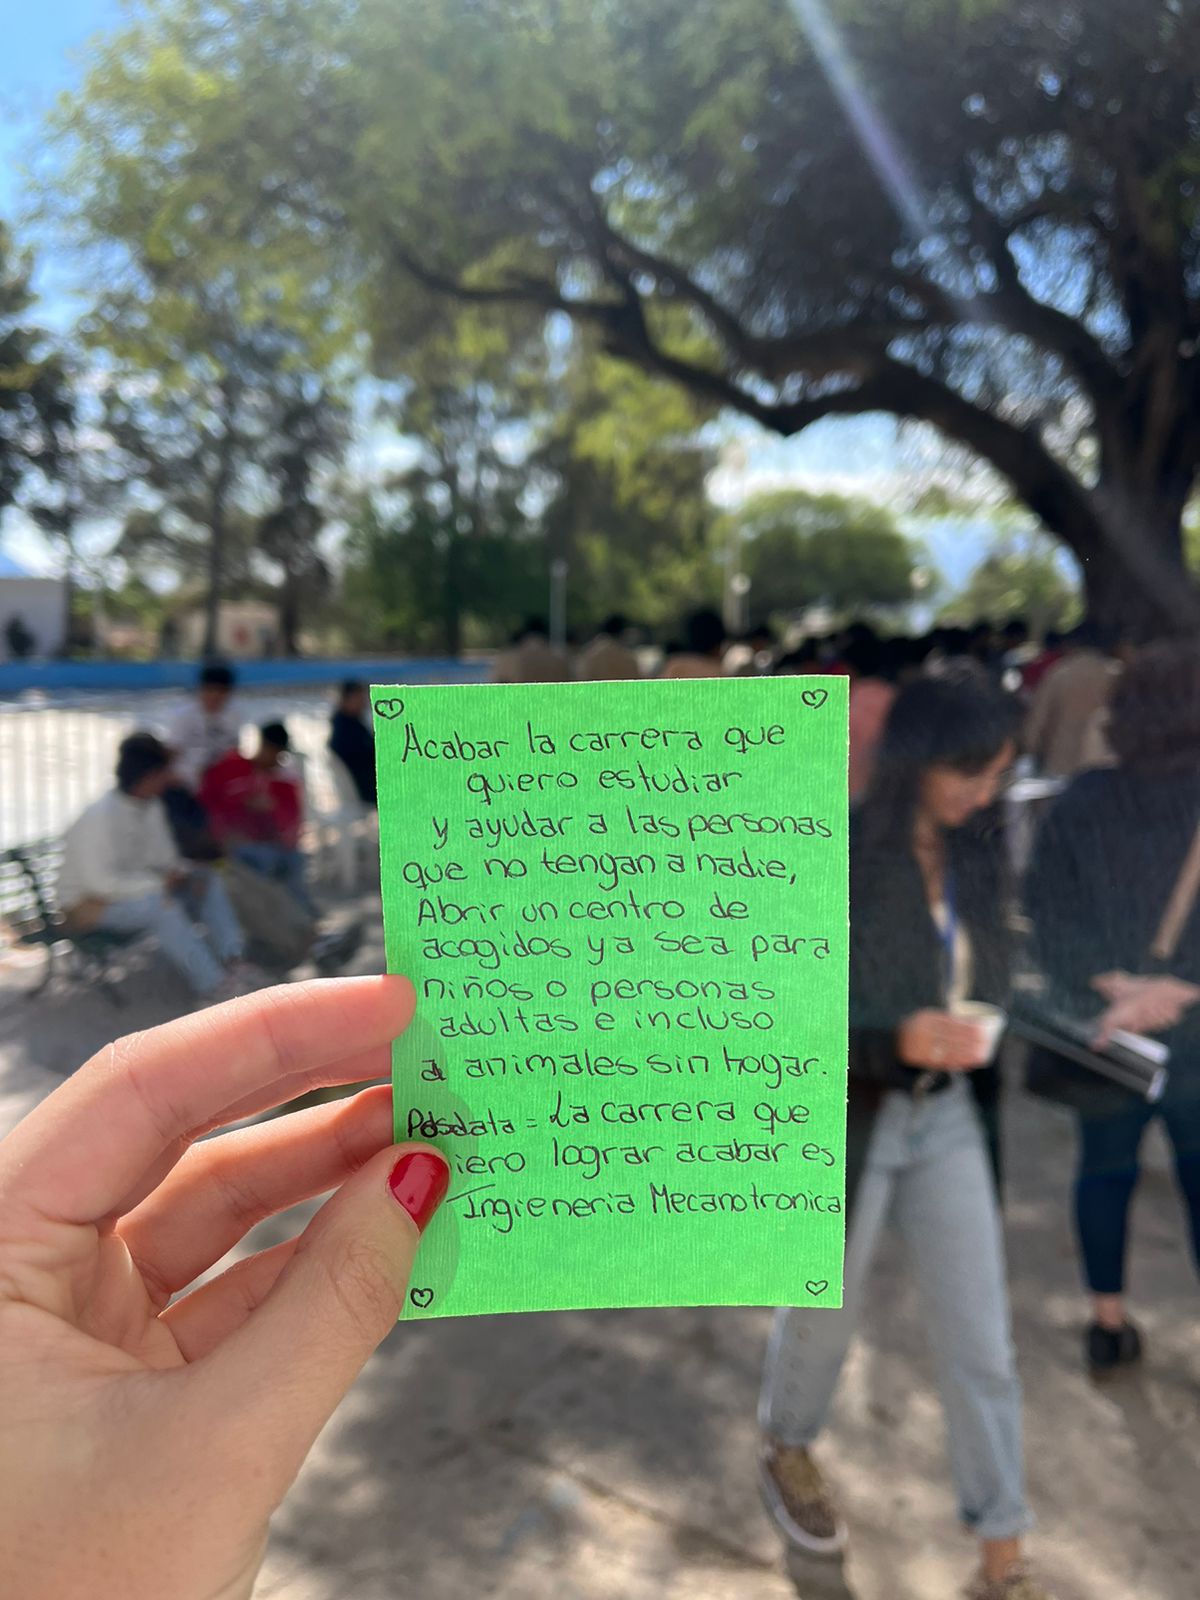 Acabar la carrera que
quiero estudiar
y ayudar a las personas
que no tengan a nadie,
Abrir un centro de
acogidos ya sea para
niños o personas
adultas e incluso
a animales sin hogar.
Posdata = La carrera que
iero lograr acabar es
Ingieneria Mecanotronica